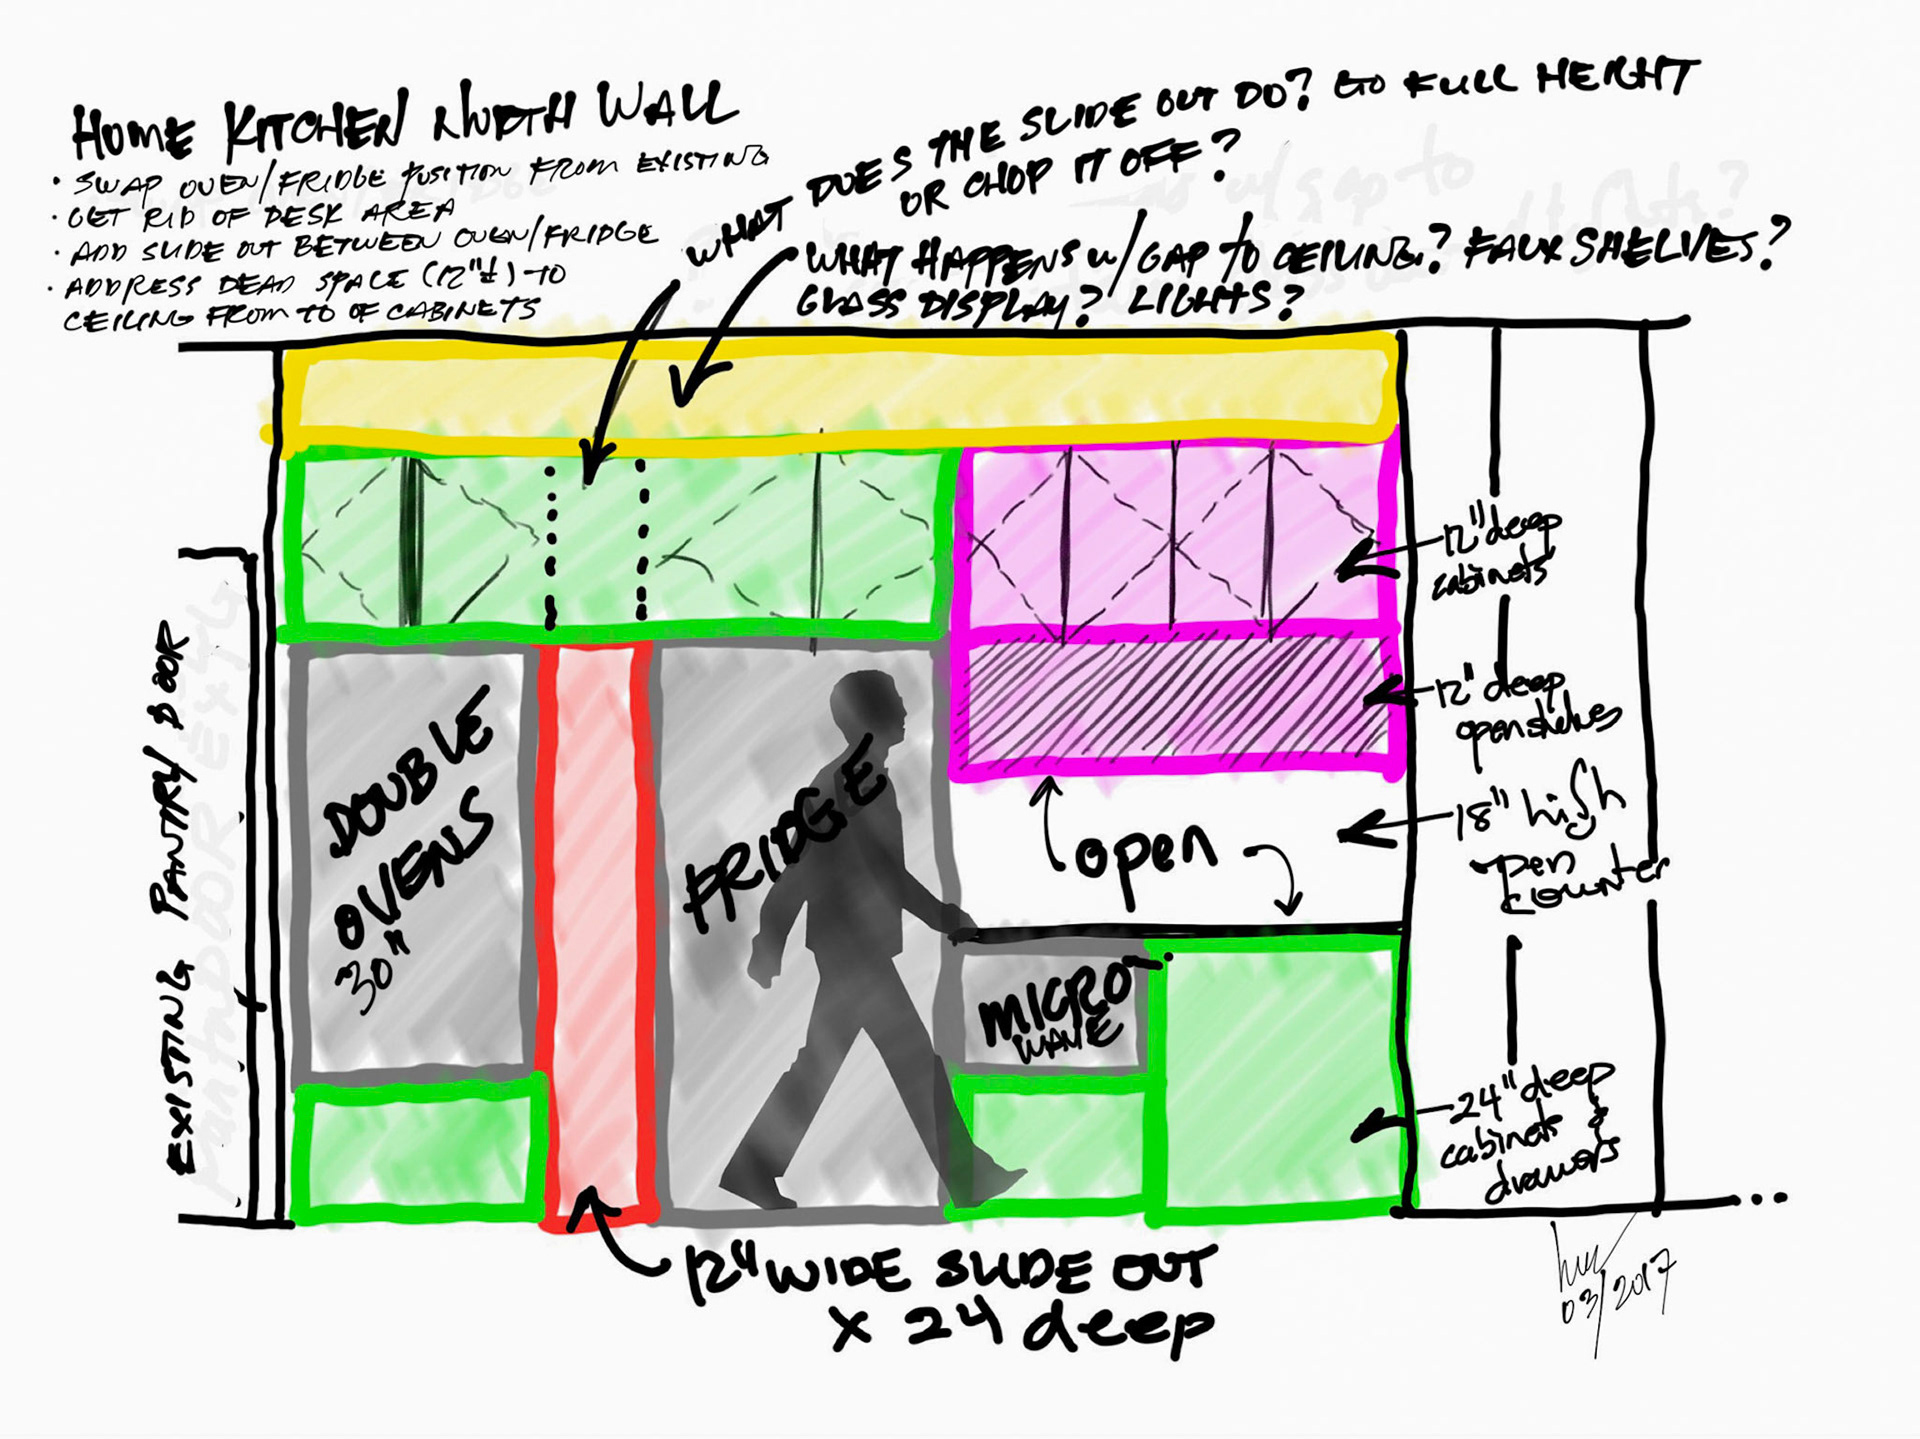 HOME KITCHEN NORTH WALL
• SWAP OVEN/FRIDGE POSITION FROM EXISTING
• GET RID OF DESK AREA
• ADD SLIDE OUT BETWEEN OVEN/FRIDGE
• ADDRESS DEAD SPACE (12"±) TO
CEILING FROM TO OF CABINETS
WHAT DOES THE SLIDE OUT DO? GO FULL HEIGHT
OR CHOP IT OFF?
WHAT HAPPENS W/GAP TO CEILING? FAUX SHELVES?
GLASS DISPLAY? LIGHTS?
12" deep
cabinets
12" deep
open shelves
18" high
open
counter
24" deep
cabinets &
drawers
EXISTING PANTRY DOOR
DOUBLE
OVENS
30"
FRIDGE
open
MICRO-
WAVE
12" WIDE SLIDE OUT
x 24 deep
03/2017